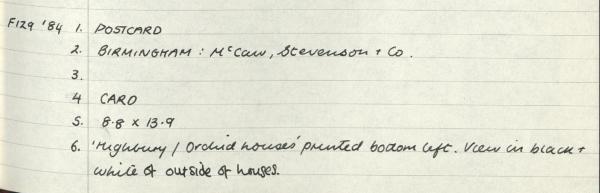 F129 '84 1. POSTCARD
2. BIRMINGHAM : McCaw, Stevenson + Co.
3.
4 CARD
5. 8.8 x 13.9
6. 'Highbury / Orchid houses' printed bottom left. View in black +
white of outside of houses.